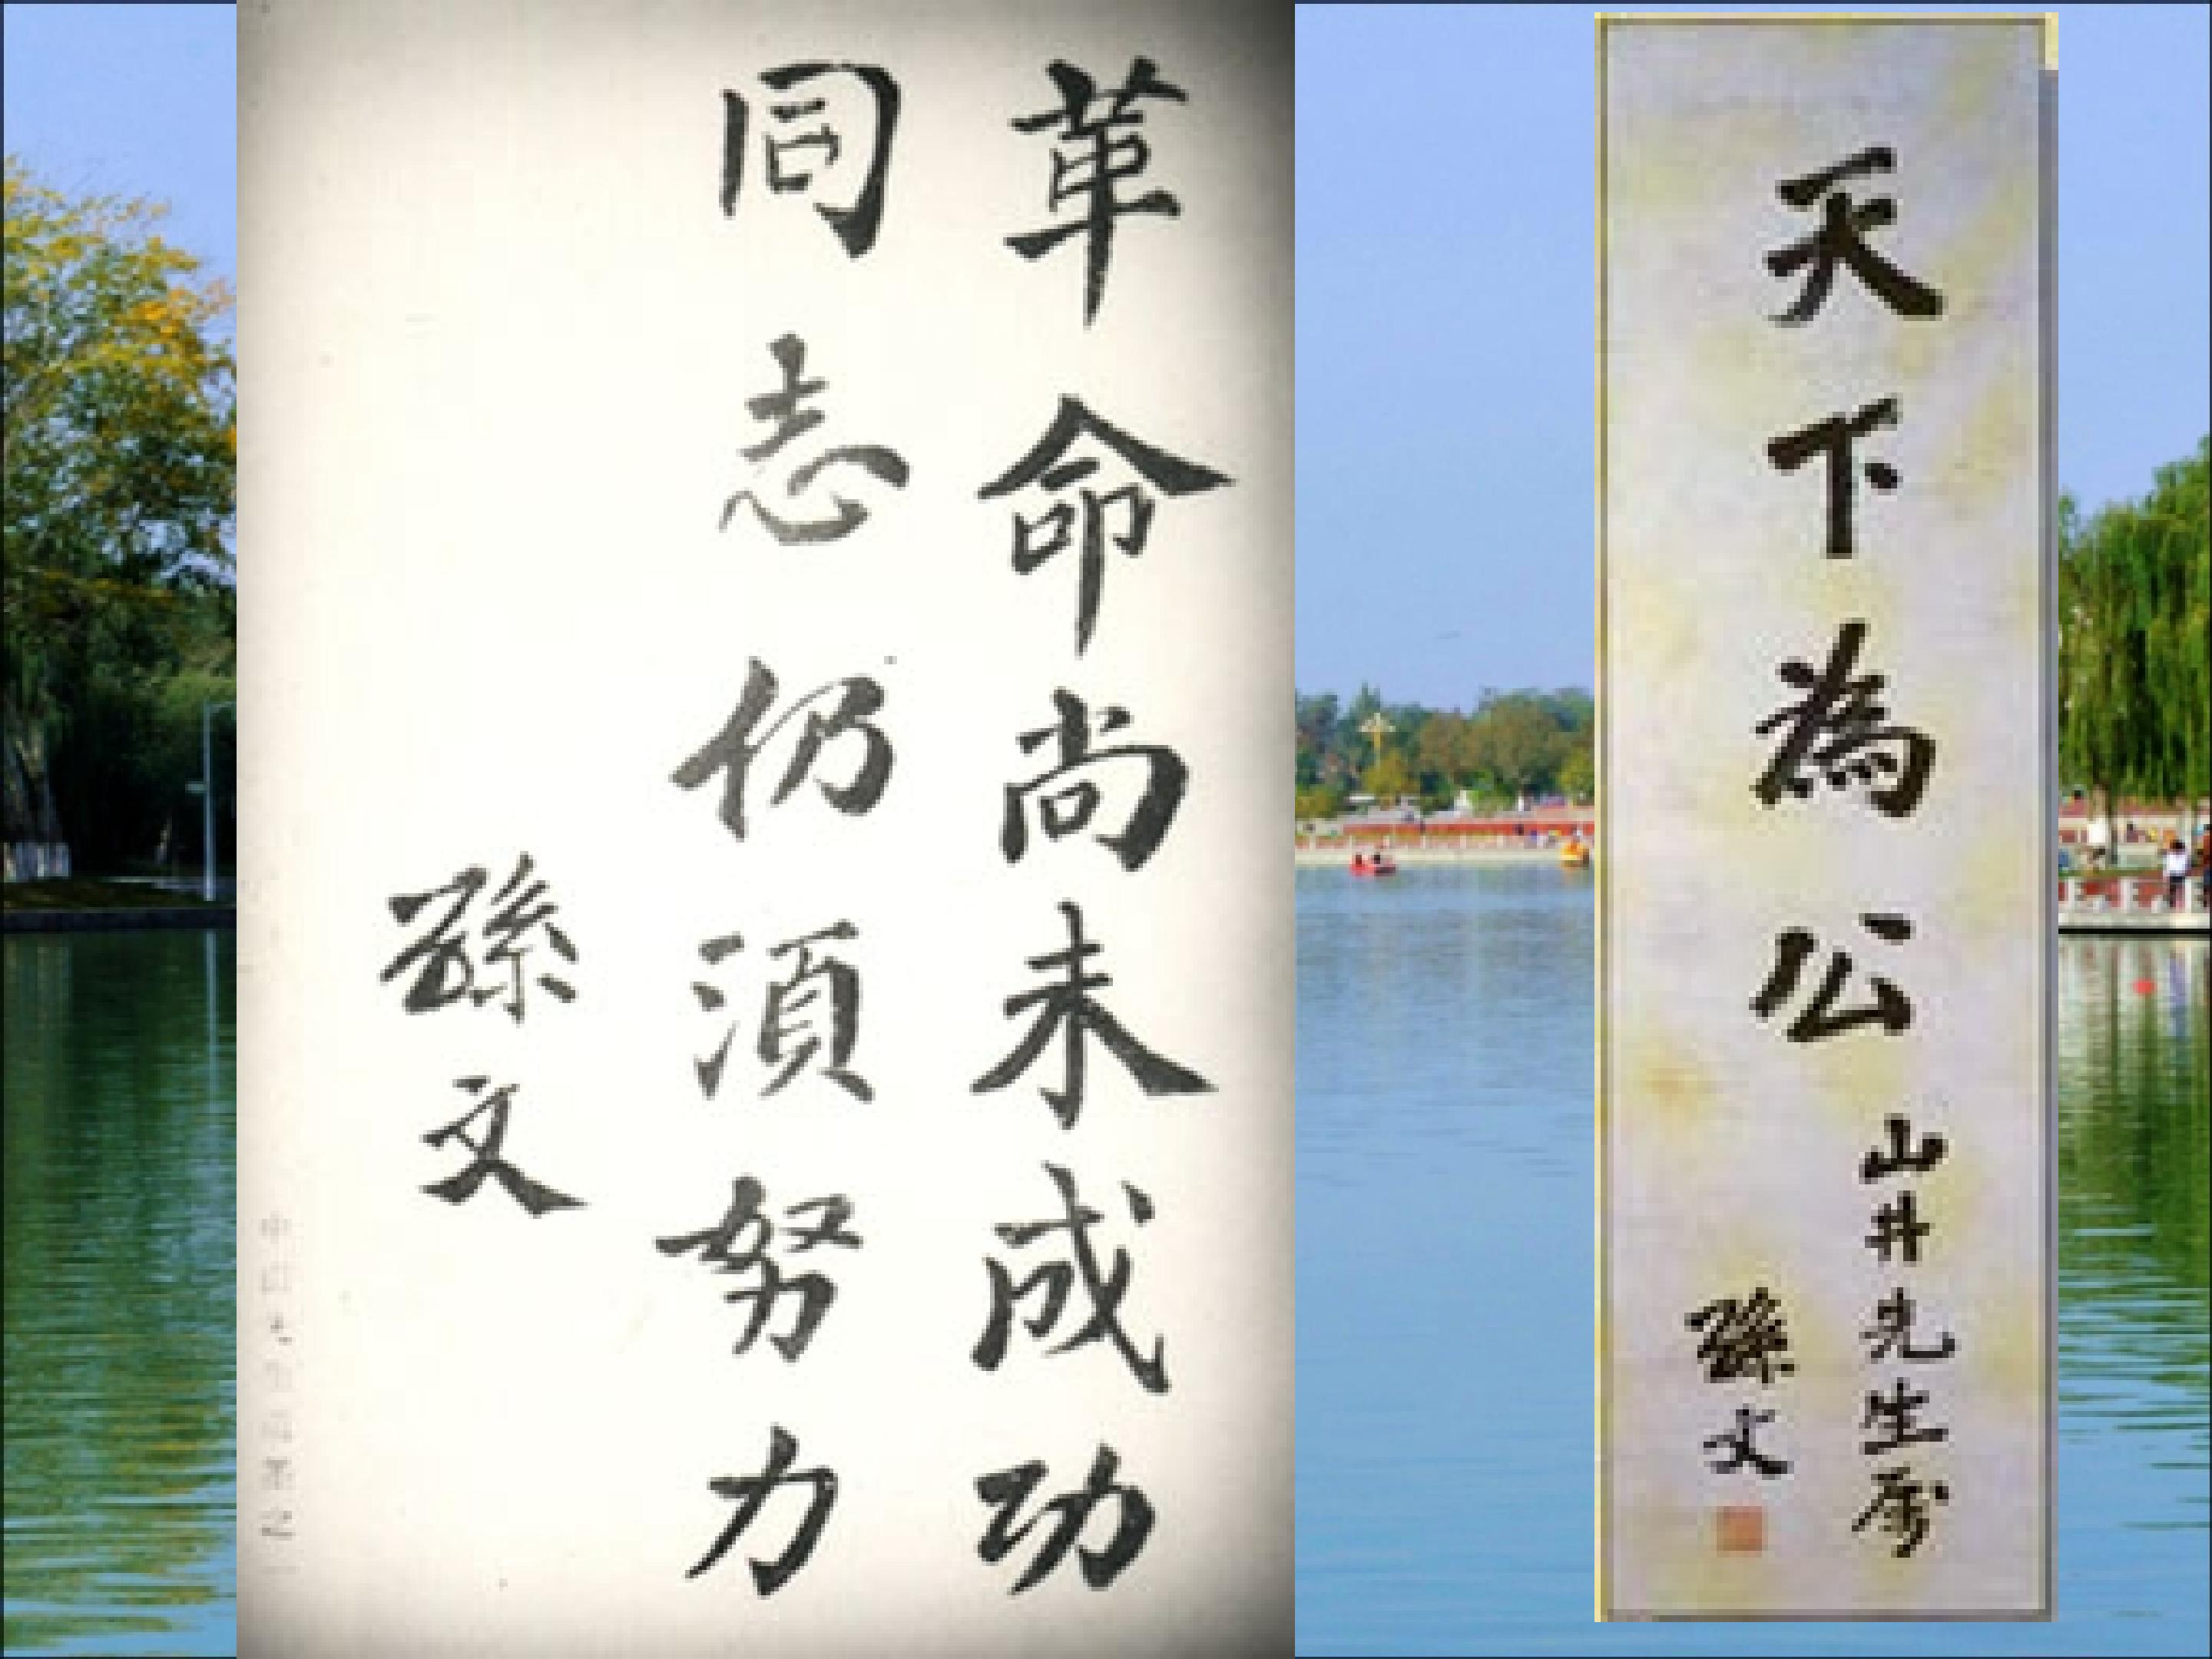 天下為公
山井先生屬
孫文
革命尚未成功
同志仍須努力
孫文